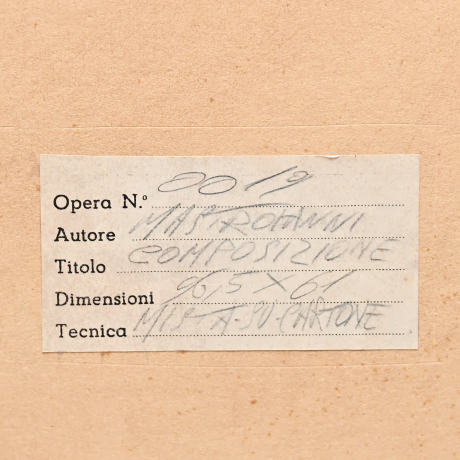 Opera N.º 0019
Autore MASTROIANNI
Titolo COMPOSIZIONE
Dimensioni 96,5 X 61
Tecnica MISTA-SU-CARTONE